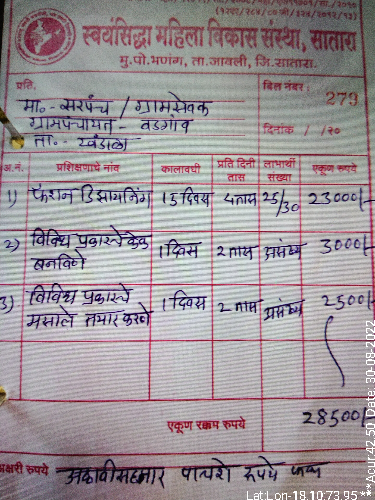 (१२१२/२८४/०७/३२४/२०१२/१३)
स्वयंसिद्धा महिला विकास संस्था, सातारा
मु.पो.भणंग, ता.जावली, जि.सातारा.
प्रति,
बिल नंबर :
279
मा.- सरपंच / ग्रामसेवक
ग्रामपंचायत - वडगांव
ता.- खंडाळा
दिनांक / /२०
अ.नं. प्रशिक्षणाचे नांव कालावधी प्रति दिनी तास लाभार्थी संख्या एकूण रुपये
1) फॅशन डिझायनिंग 15 दिवस 4 तास 25/30 23000/-
2) विविध प्रकारचे केक 1 दिवस 2 तास असंख्य 3000/-
बनविणे
3) विविध प्रकारचे 1 दिवस 2 तास असंख्य 2500/-
मसाले तयार करणे
एकूण रक्कम रुपये 28500/-
अक्षरी रुपये अठ्ठावीसहजार पाचशे रुपये फक्त
Lat Lon-18.10:73.95***Acur:42.50 Date: 30-08-2022